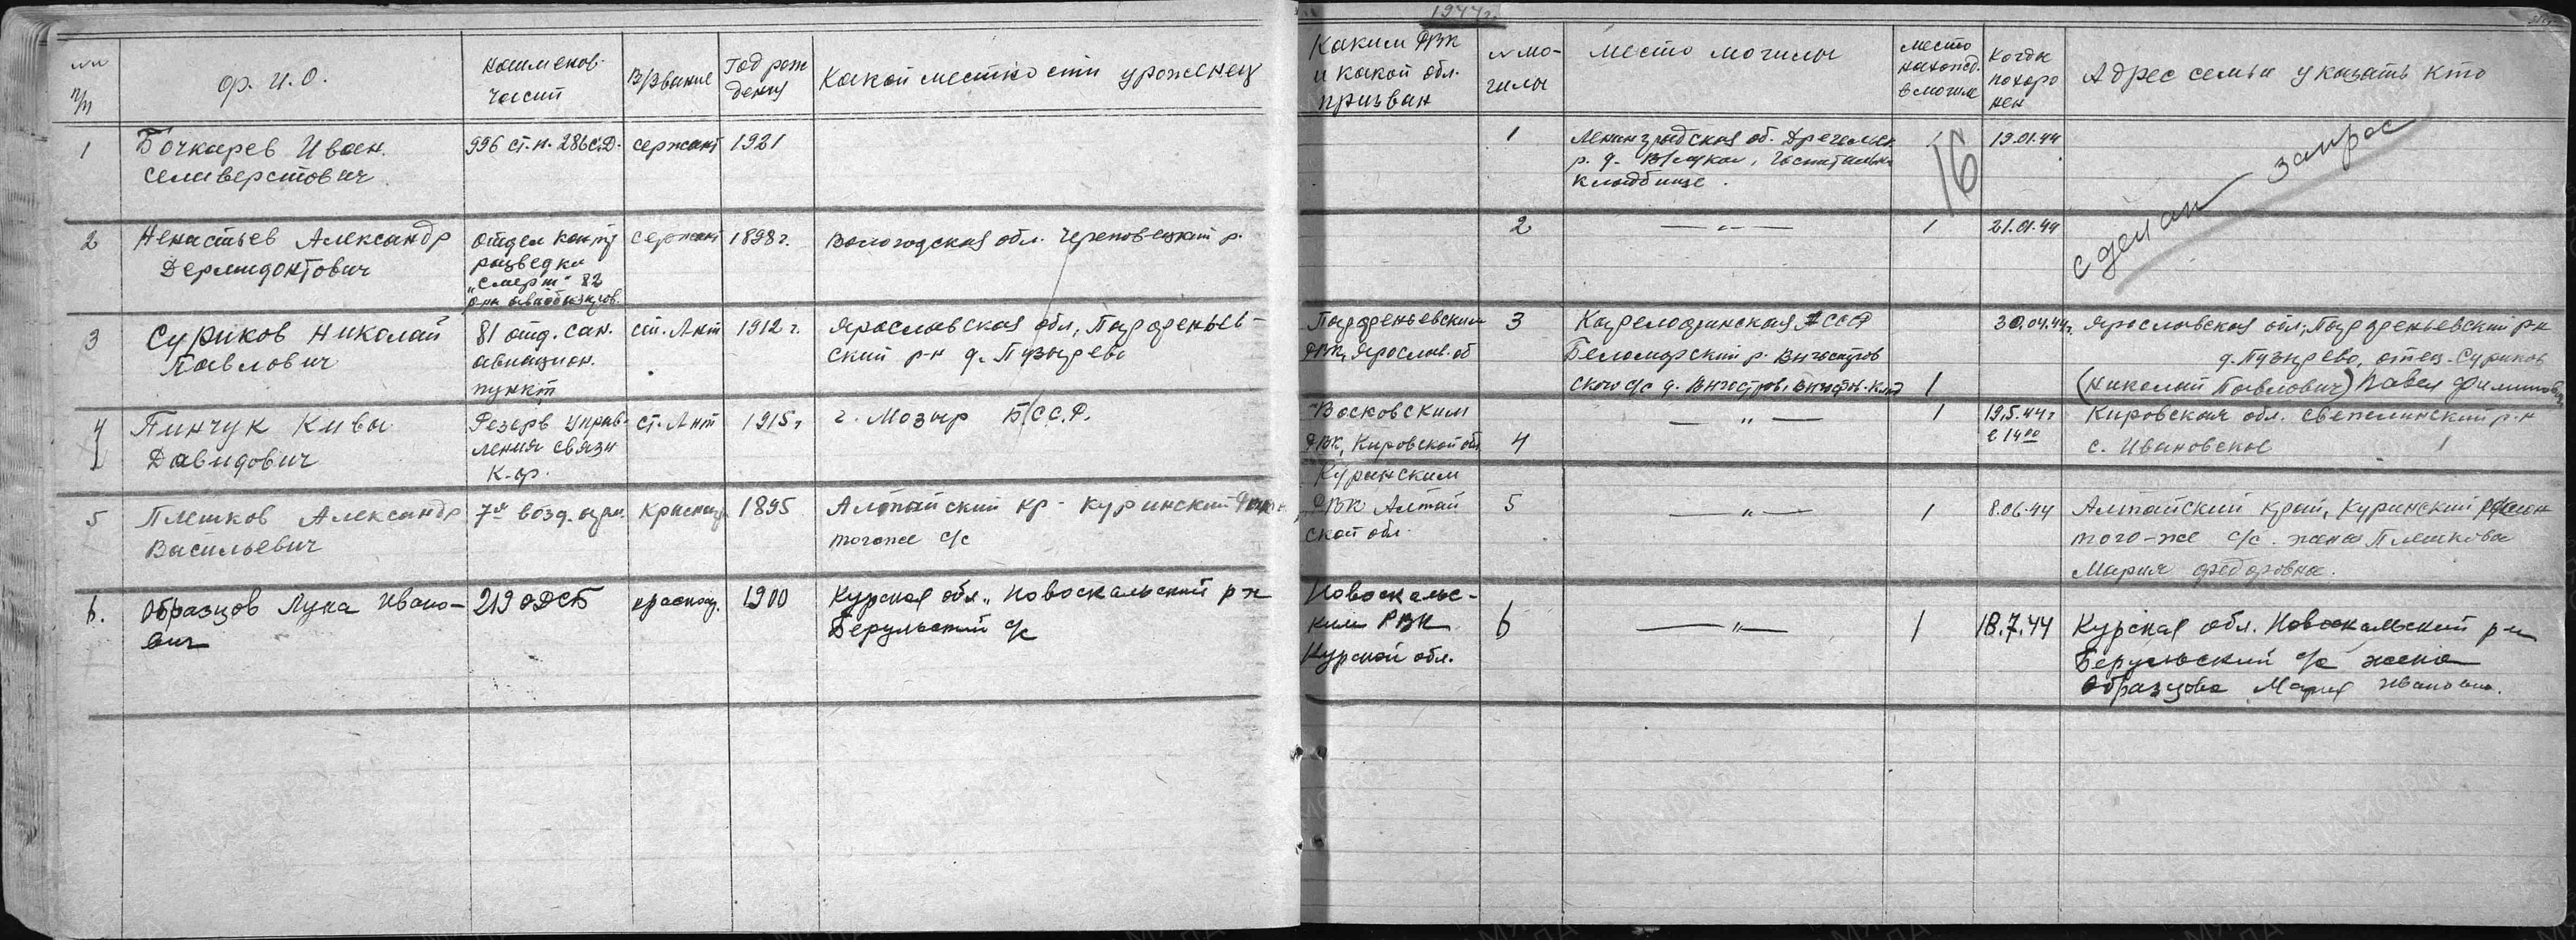 1944г.
№№ п/п
Ф. И. О.
Наименов. части
В/звание
Год рождения
Какой местности уроженец
Каким РВК и какой обл. призван
№ могилы
Место могилы
место наход. в могиле
Когда похоронен
Адрес семьи указать кто
1
Бочкарев Иван
Селиверстович
996 ст. п. 286 с.Д.
сержант
1921
1
Ленинградская об.
р. д.
кладбище.
16
19.01.44
сделан запрос
2
Ненастьев Александр
Дермидонтович
отдел контр
разведки
„Смерш" 82
сержант
1898 г.
Вологодская обл. Череповецкий р.
2
— " —
1
21.01.44
3
Суриков Николай
Павлович
81 отд. сан.
авиацион.
пункт
ст. Лнт
1912 г.
Ярославская обл, Парфеньев-
ский р-н д. Пузырево
Парфеньевским
РВК, Ярослав. об
3
Карелофинская ССР
Беломорский р. Выгостров
ского с/с д. Выгостров,
1
30.04.44г.
Ярославская обл; Парфеньевский рн
д. Пузырево, отец Суриков
(Николай Павлович) Павел
4
Пинчук Кива
Давидович
Резерв Управ-
ления связи
К-ф.
ст. Лнт
1915 г
г. Мозыр БССР.
РВК, Кировской обл
4
— " —
1
19.5.44 г
в 14 00
Кировская обл. р-н
с. Ивановское
5
Плешков Александр
Васильевич
7я возд. арм.
Красноар
1895
Алтайский кр- Куринский
тогоже с/с
Куринским
РВК Алтай
ской обл.
5
— " —
1
8.06.44
Алтайский край, Куринский район
того-же с/с. жена Плешкова
Мария Федоровна.
6.
Образцов Лука Ивано-
вич
219 ОДСБ
красноар.
1900
Курская обл., Новоскальский р-н
Берульский с/с
Новоскальс-
ким РВК
Курской обл.
6
— " —
1
18.7.44
Курская обл. Новоскальский р-н
Берульский с/с жена
Образцова Мария Ивановна.